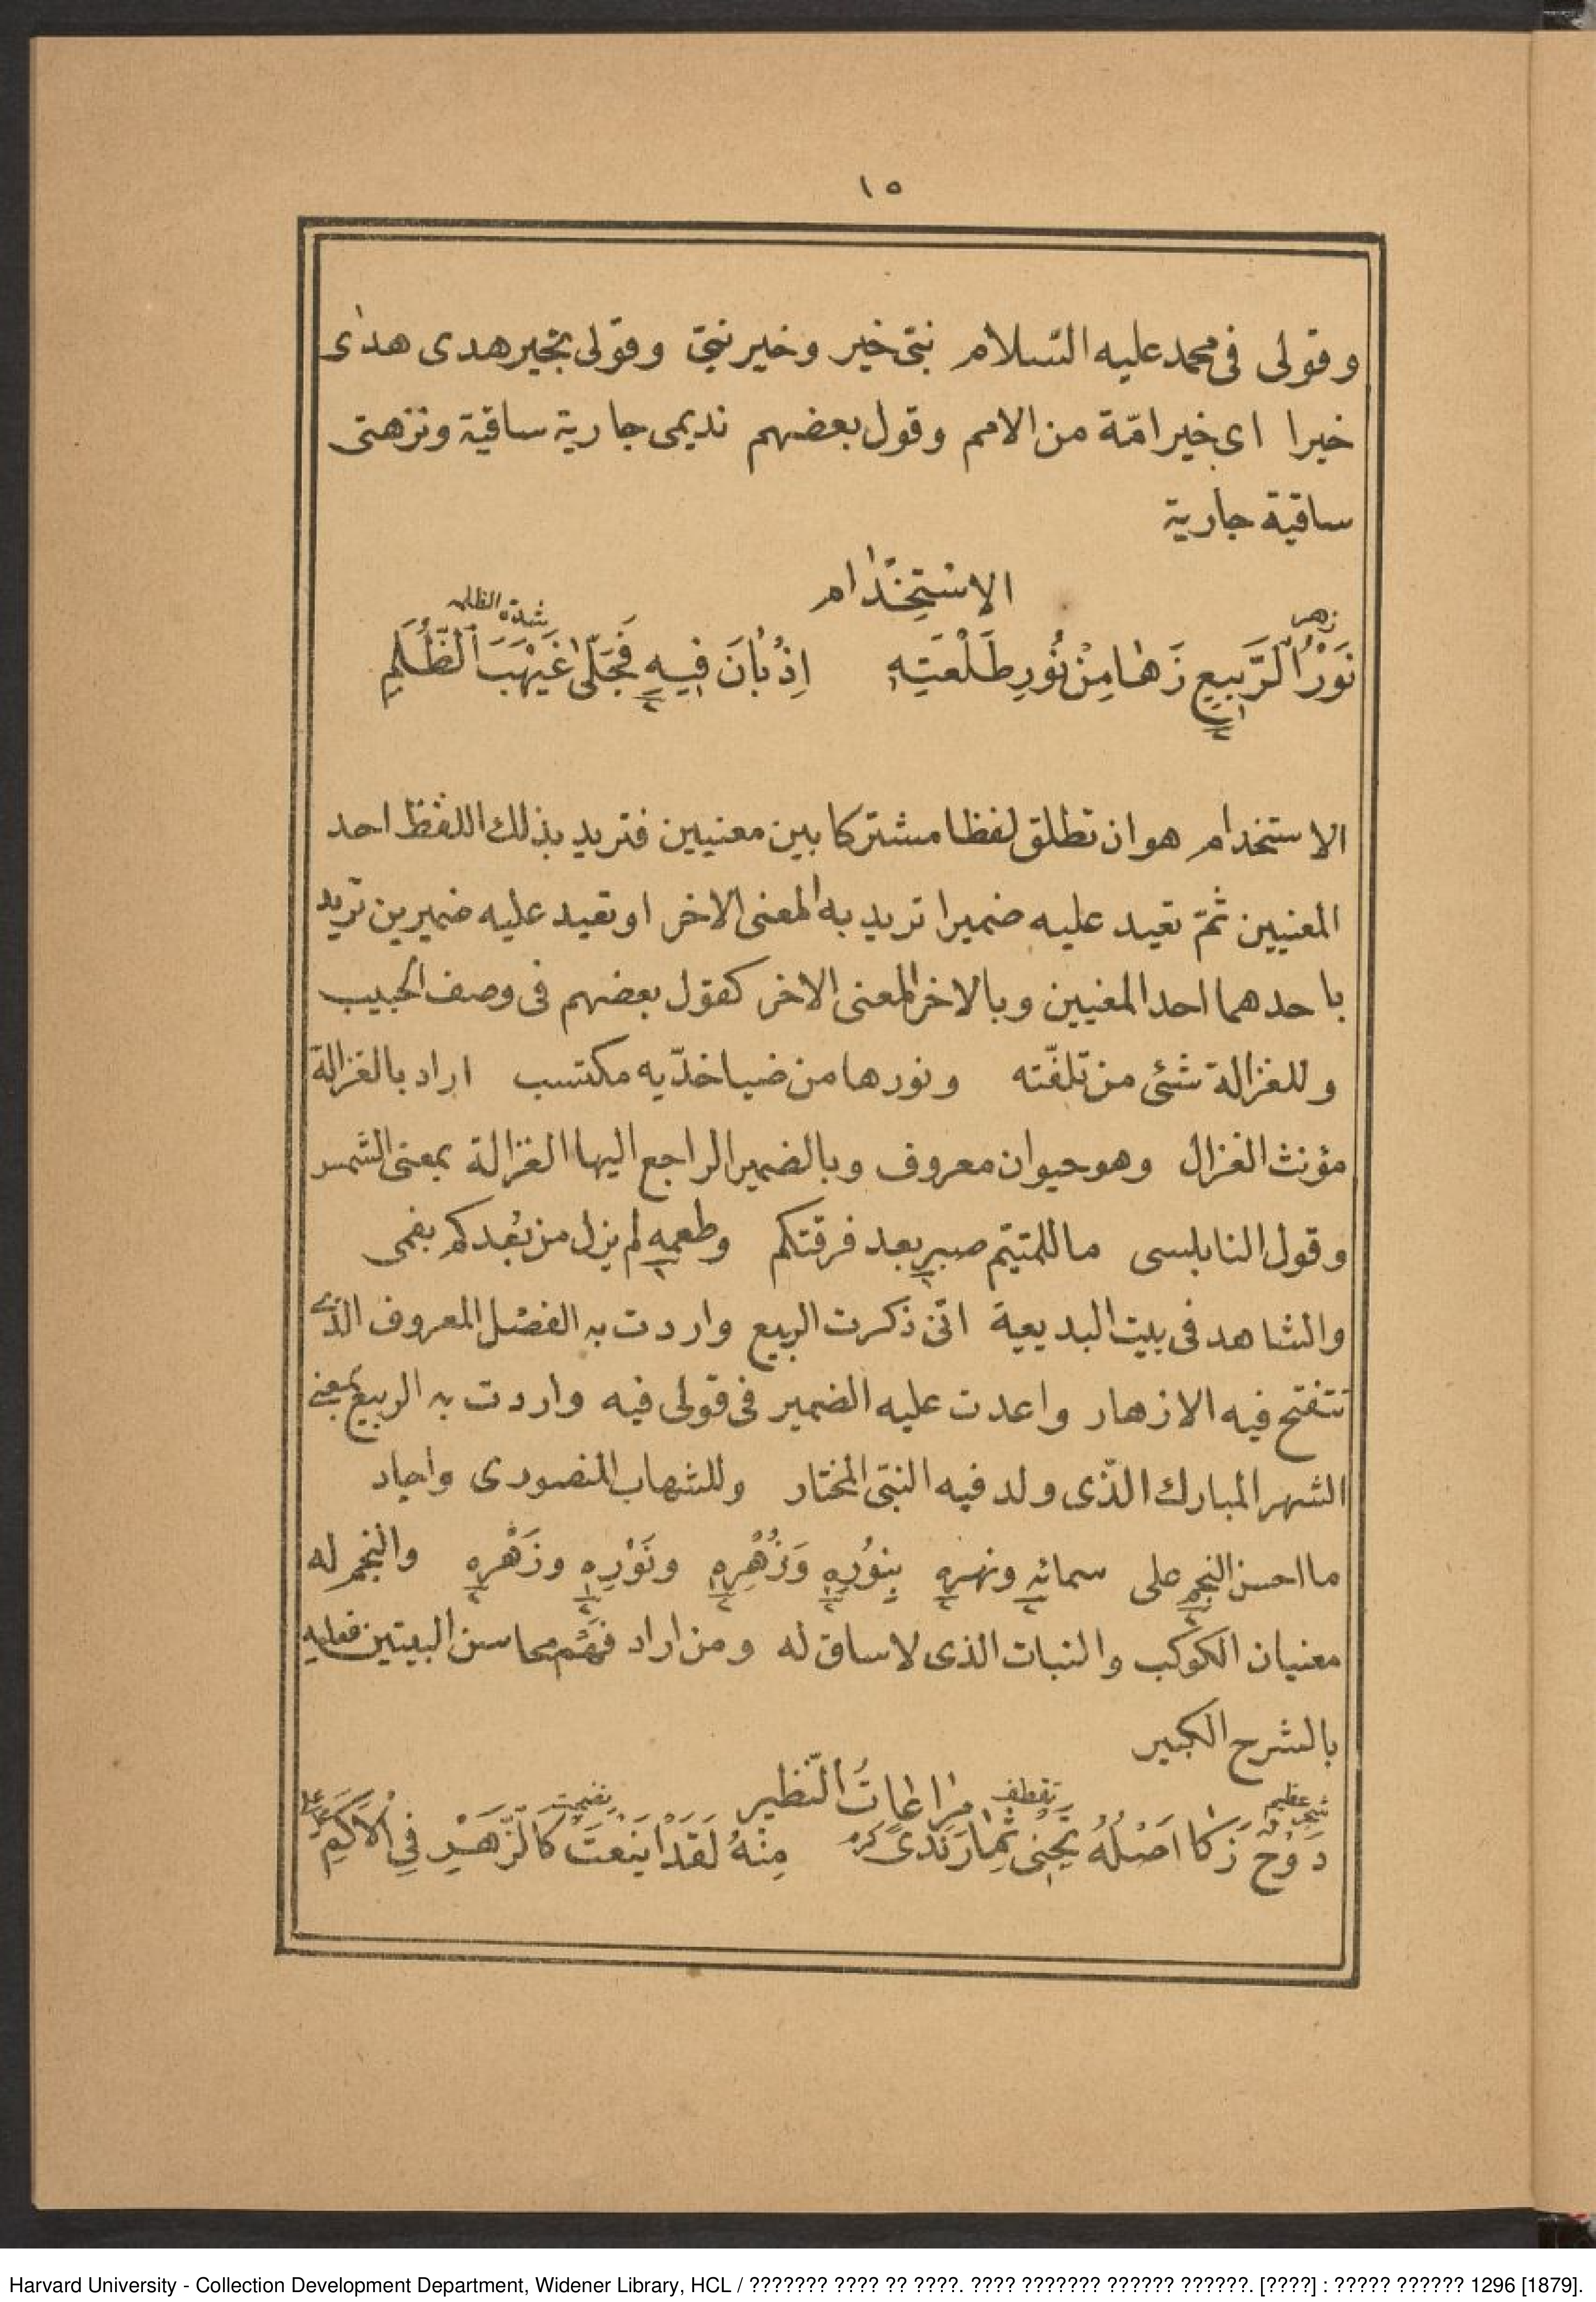 ١٥
وقولى فى محمد عليه السّلام نبىّ خير وخير نبىّ وقولى بخير هدى هدى
خيرا اى خير امّة من الامم وقول بعضهم نديمى جارية ساقية ونزهتى
ساقية جارية
الاِسْتِخْدام
زهر شدة الظلمه
نَوْرُ الرَّبِيعِ زَهَا مِنْ نُورِ طَلْعَتِهِ اِذْ بَانَ فِيهِ فَجَلّى غَيْهَبَ الظُّلَمِ
الاستخدام هو ان تطلق لفظا مشتركا بين معنيين فتريد بذلك اللفظ احد
المعنيين ثمّ تعيد عليه ضميرا تريد به المعنى الاخر او تعيد عليه ضميرين تريد
باحدهما احد المعنيين وبالاخر المعنى الاخر كقول بعضهم فى وصف الحبيب
وللغزالة شئ من تلفّته ونورها من ضيا خدّيه مكتسب اراد بالغزالة
مؤنث الغزال وهو حيوان معروف وبالضمير الراجع اليها الغزالة بمعنى الشمس
وقول النابلسى ما للمتيّم صبر بعد فرقتكم وطعمه لم يزل من بُعدكم بفمى
والشاهد فى بيت البديعية انّى ذكرت الربيع واردت به الفصل المعروف الذى
تتفتح فيه الازهار واعدت عليه الضمير فى قولى فيه واردت به الربيع بمعنى
الشهر المبارك الّذى ولد فيه النبىّ المختار وللشهاب المنصورى واجاد
ما احسن النجم على سمائه ونهره بِنُورِهِ وَزُهْرِهِ ونَوْرِهِ وزَهْرِهِ والنجم له
معنيان الكوكب والنبات الذى لا ساق له ومن اراد فَهْم محاسن البيتين فعليه
بالشرح الكبير
مُرَاعَاتُ النَّظِير
شجر عظيم تقطف نضجت
دَوْحٌ زَكَا اَصْلُهُ تُجْنى ثِمَارُ نَدًى كرم مِنْهُ لَقَدْ اَيْنَعَتْ كَالزَّهْرِ فِى الْاَكَمِ